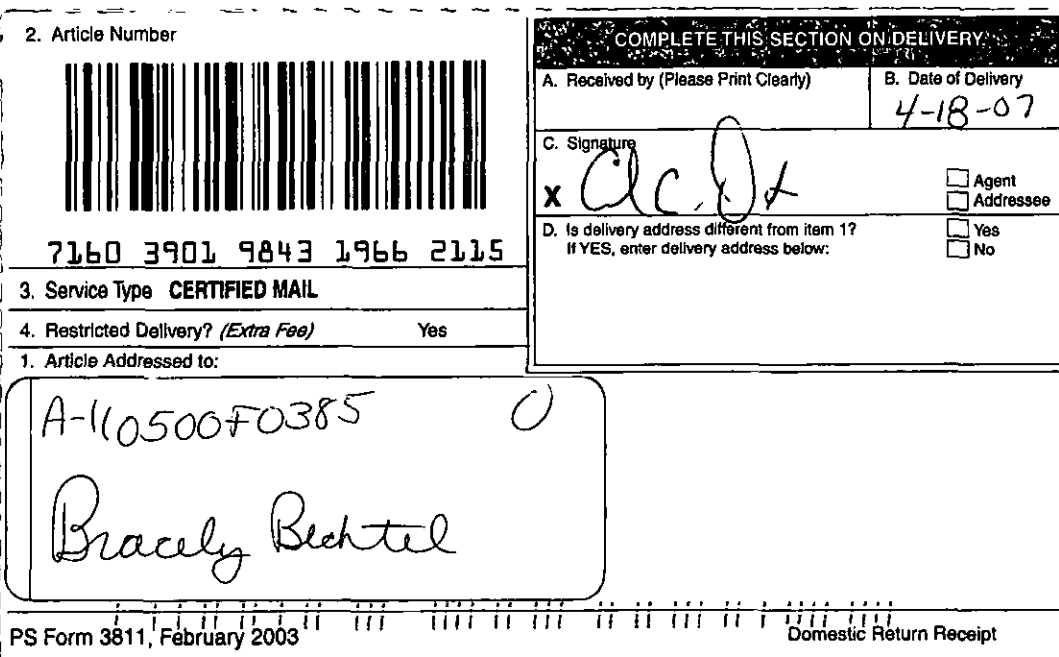 2. Article Number
7160 3901 9843 1966 2115
3. Service Type CERTIFIED MAIL
4. Restricted Delivery? (Extra Fee) Yes
1. Article Addressed to:
A-110500F0385
Bracely Bechtel
COMPLETE THIS SECTION ON DELIVERY
A. Received by (Please Print Clearly)
B. Date of Delivery
4-18-07
C. Signature
X
Agent
Addressee
D. Is delivery address different from item 1?
If YES, enter delivery address below:
Yes
No
PS Form 3811, February 2003
Domestic Return Receipt